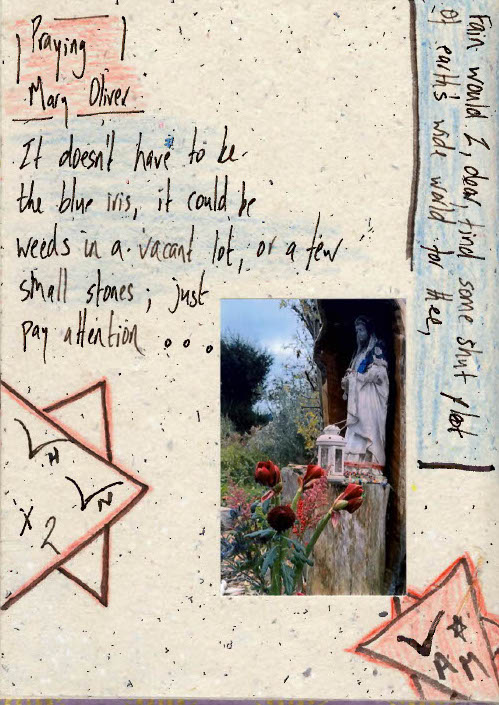 Praying
Mary Oliver
It doesn't have to be
the blue iris, it could be
weeds in a vacant lot, or a few
small stones; just
pay attention ...
Fain would I, dear, find some shut plot
Of earth's wide world for thee,
H
N
X 2
A M